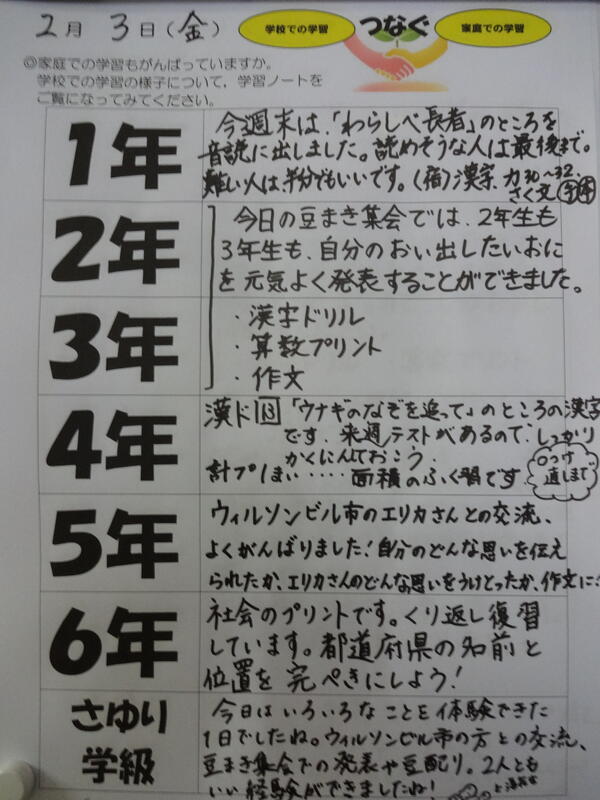 2月 3日(金)
学校での学習 つなぐ 家庭での学習
◎家庭での学習もがんばっていますか。
学校での学習の様子について、学習ノートを
ご覧になってみてください。
1年
今週末は、「わらしべ長者」のところを
音読に出しました。読めそうな人は最後まで。
難い人は半分でもいいです。(宿)漢字 力30~32、
さく文
2年
今日の豆まき集会では、2年生も
3年生も、自分のおい出したいおに
を元気よく発表することができました。
3年
・漢字ドリル
・算数プリント
・作文
4年
漢ド13「ウナギのなぞを追って」のところの漢字
です。来週テストがあるので、しっかり
かくにんておこう。
計プ1まい‥‥面積のふく習です
○つけ
直しまで
5年
ウィルソンビル市のエリカさんとの交流、
よくがんばりました!自分のどんな思いを伝え
られたか、エリカさんのどんな思いをうけとったか、作文に
6年
社会のプリントです。くり返し復習
しています。都道府県の名前と
位置を完ぺきにしよう!
さゆり
学級
今日はいろいろなことを体験できた
1日でしたね。ウィルソンビル市の方との交流、
豆まき集会での発表や豆配り。2人とも
いい経験ができましたね!